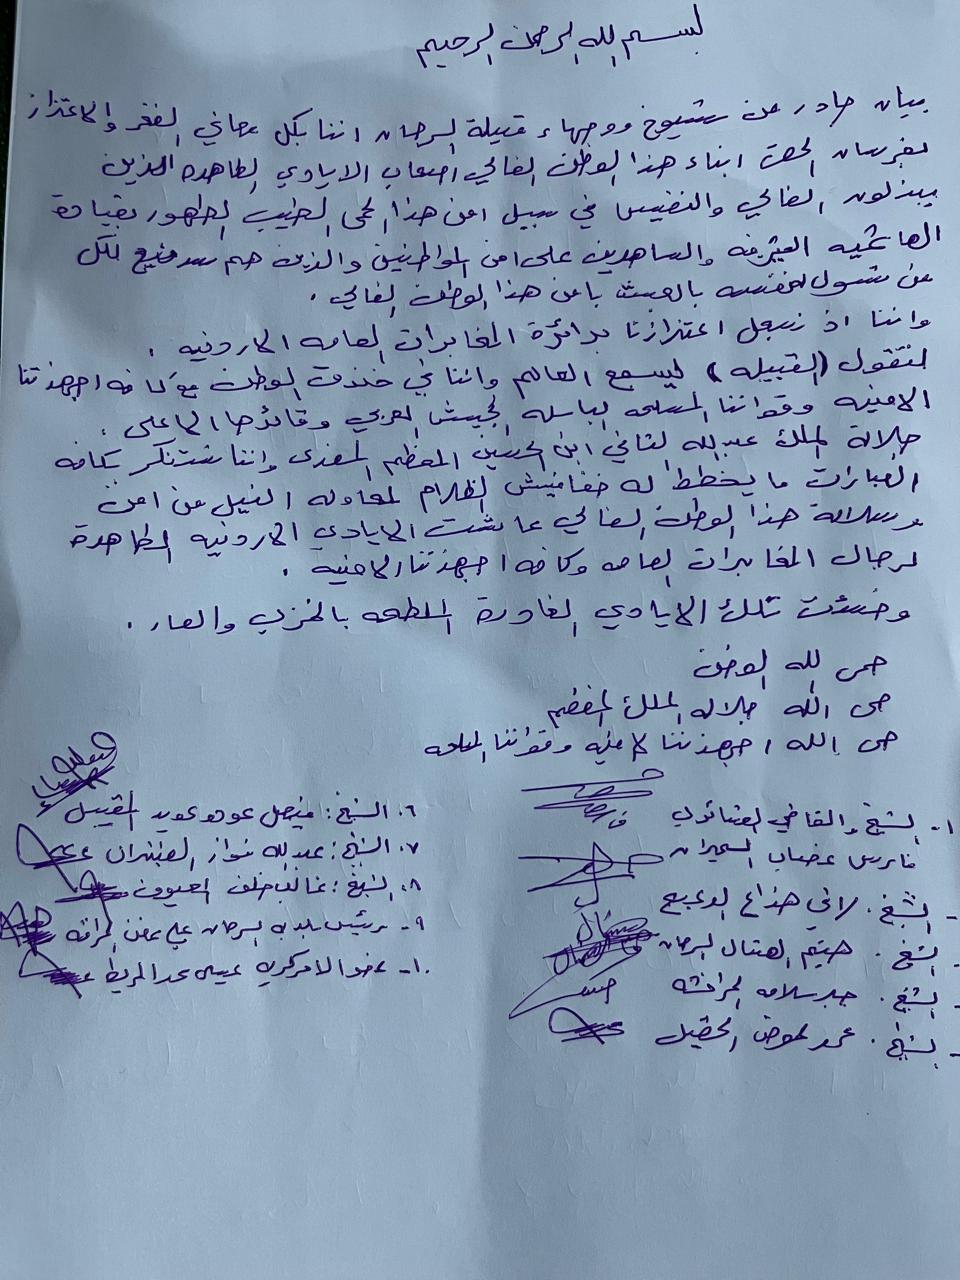 بسم الله الرحمن الرحيم
بيان صادر عن شيوخ ووجهاء قبيلة السرحان اننا بكل معاني الفخر والاعتزاز
بفرسان الحق ابناء هذا الوطن الغالي اصحاب الايادي الطاهره الذين
يبذلون الغالي والنفيس في سبيل امن هذا الحمى الطيب الطهور بقيادة
الهاشميه الشريفه والساهرين على امن المواطنين والذين هم سد منيع لكل
من تسول له نفسه بالعبث بامن هذا الوطن الغالي .
واننا اذ نسجل اعتزازنا بدائرة المخابرات العامه الاردنيه .
لنقول (القبيله) ليسمع العالم واننا في خندق الوطن مع كافه اجهزتنا
الامنيه وقواتنا المسلحه الباسله الجيش العربي وقائدها الاعلى .
جلالة الملك عبدالله الثاني ابن الحسين المعظم المفدى واننا نستنكر بكافه
العبارات ما يخطط له خفافيش الظلام لمحاوله النيل من امن
وسلامة هذا الوطن الغالي عاشت الايادي الاردنيه الطاهرة
لرجال المخابرات العامه وكافه اجهزتنا الامنيه .
وخسئت تلك الايادي الغادرة الملطخه بالخزي والعار .
حمى الله الوطن
حمى الله جلاله الملك المعظم
حمى الله اجهزتنا الامنيه وقواتنا المسلحه
١- الشيخ والقاضي العشائري
فارس غضبان السميران
- الشيخ . لافي هذاع
- الشيخ . هيثم الهتال السرحان
- الشيخ . جبر سلامه الحرافشه
- الشيخ . محمد العوض
٦. الشيخ : فيصل عوده عويد المقيبل
٧. الشيخ : عبدالله نواز
٨. الشيخ : غالب خلف العيوف
٩- رئيس بلديه السرحان علي
١٠- عضو اللامركزيه عيسى